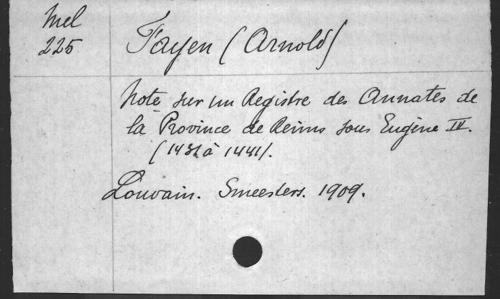 Mel
225
Fayen (Arnold)
Note sur un Registre des Annates de
la Province de Reims sous Eugène IV.
(1431 à 1441).
Louvain. Smeesters. 1909.